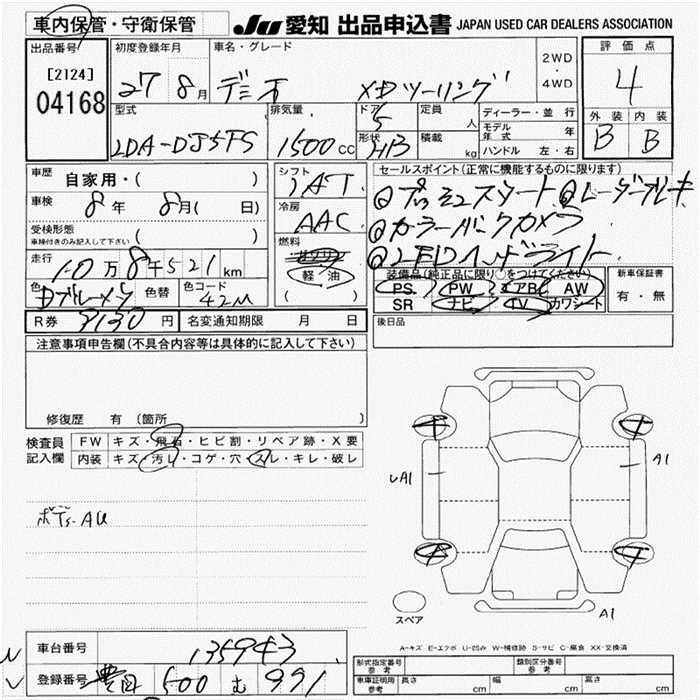 車内保管・守衛保管
JU 愛知 出品申込書 JAPAN USED CAR DEALERS ASSOCIATION
出品番号 [2124] 04168
初度登録年月 27 8月
車名・グレード デミオ XDツーリング
2WD・4WD
評価点 4
外装 B 内装 B
型式 LDA-DJ5FS
排気量 1500 CC
ドア 5
形状 HB
定員 人
積載 kg
ディーラー・並行
モデル年式 年
ハンドル 左・右
車歴 自家用・( )
シフト IAT
セールスポイント(正常に機能するものに限ります)
◎プッシュスタート ◎レーダーブレーキ
◎カラーバックカメラ
◎LEDヘッドライト
車検 8年 8月( 日)
冷房 AAC
受検形態 車検付きのみ記入して下さい ( )
燃料 軽・油 ( )
走行 10万8千521km
色 Dブルーメタ 色替 色コード 42M
装備品(純正品に限り○をつけてください)
PS PW エアB AW
SR ナビ TV カワシート
新車保証書 有・無
R券 9130円 名変通知期限 月 日
後日品
注意事項申告欄(不具合内容等は具体的に記入して下さい)
修復歴 有 (箇所 )
検査員記入欄
FW キズ・飛石・ヒビ割・リペア跡・X要
内装 キズ・汚レ・コゲ・穴・スレ・キレ・破レ
A1
A1
A1
スペア
A-キズ E-エクボ U-凹み W-補修跡 S-サビ C-腐食 XX-交換済
車台番号 135943
登録番号 豊田 500 む 991
形式指定番号 参考
類別区分番号 参考
車庫証明用 参考 長さ cm 幅 cm 高さ cm